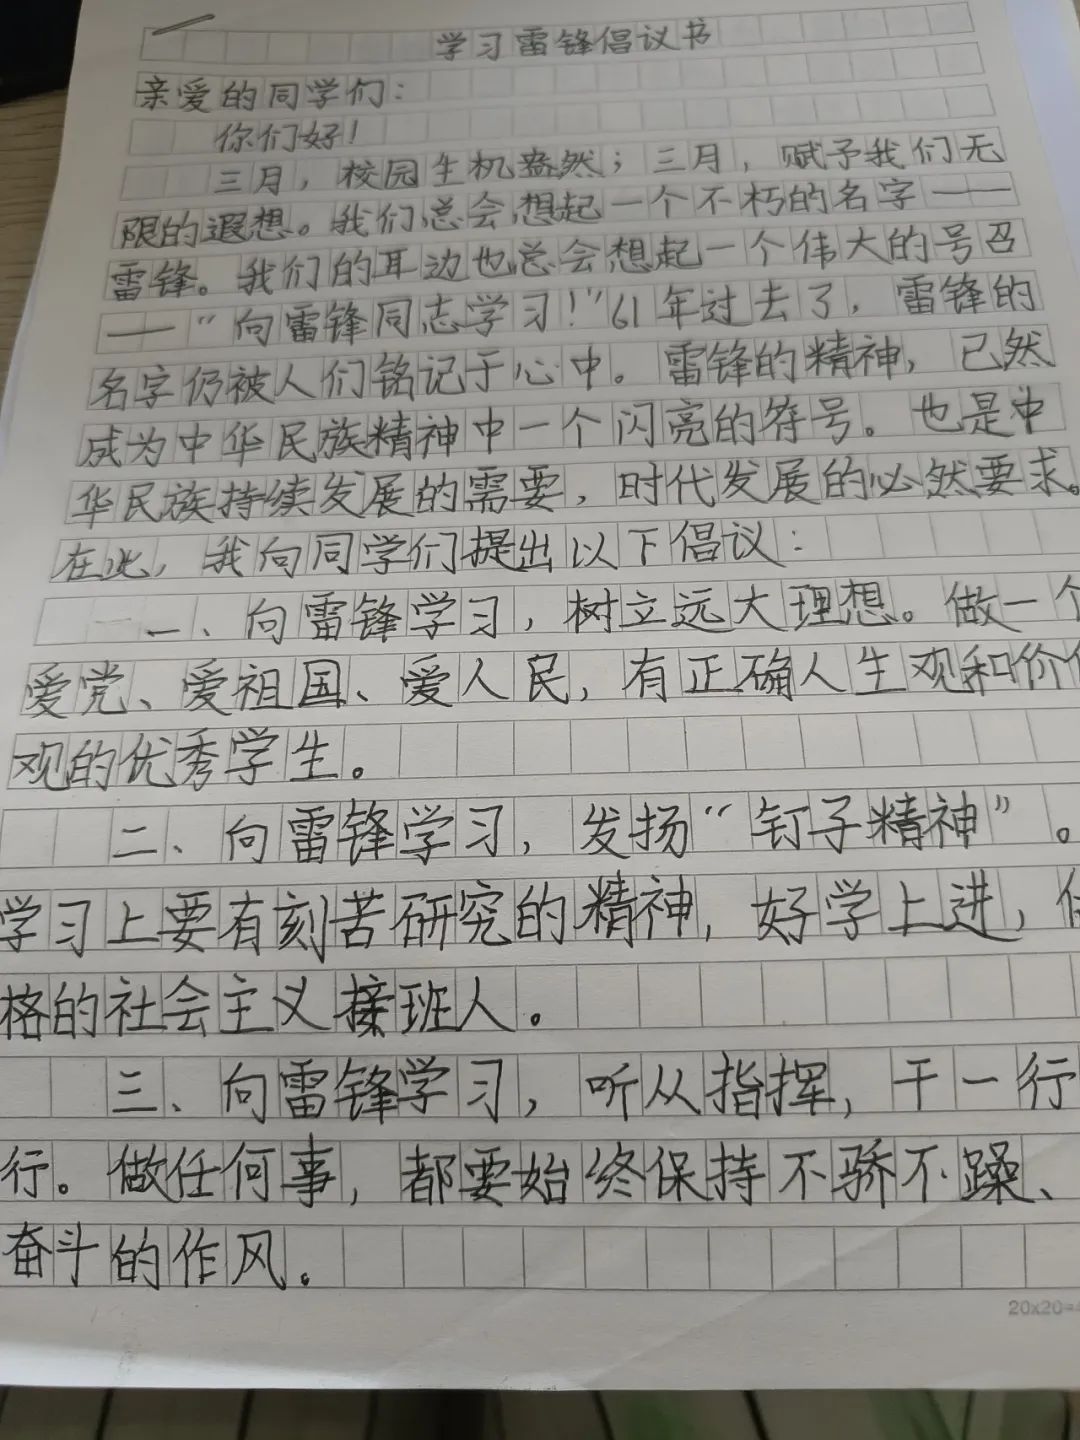 学习雷锋倡议书
亲爱的同学们：
你们好！
三月，校园生机盎然；三月，赋予我们无
限的遐想。我们总会想起一个不朽的名字——
雷锋。我们的耳边也总会想起一个伟大的号召
——“向雷锋同志学习！”61年过去了，雷锋的
名字仍被人们铭记于心中。雷锋的精神，已然
成为中华民族精神中一个闪亮的符号。也是中
华民族持续发展的需要，时代发展的必然要求。
在此，我向同学们提出以下倡议：
一、向雷锋学习，树立远大理想。做一个
爱党、爱祖国、爱人民，有正确人生观和价
观的优秀学生。
二、向雷锋学习，发扬“钉子精神”。
学习上要有刻苦研究的精神，好学上进，
格的社会主义接班人。
三、向雷锋学习，听从指挥，干一行
行。做任何事，都要始终保持不骄不躁、
奋斗的作风。
20x20=